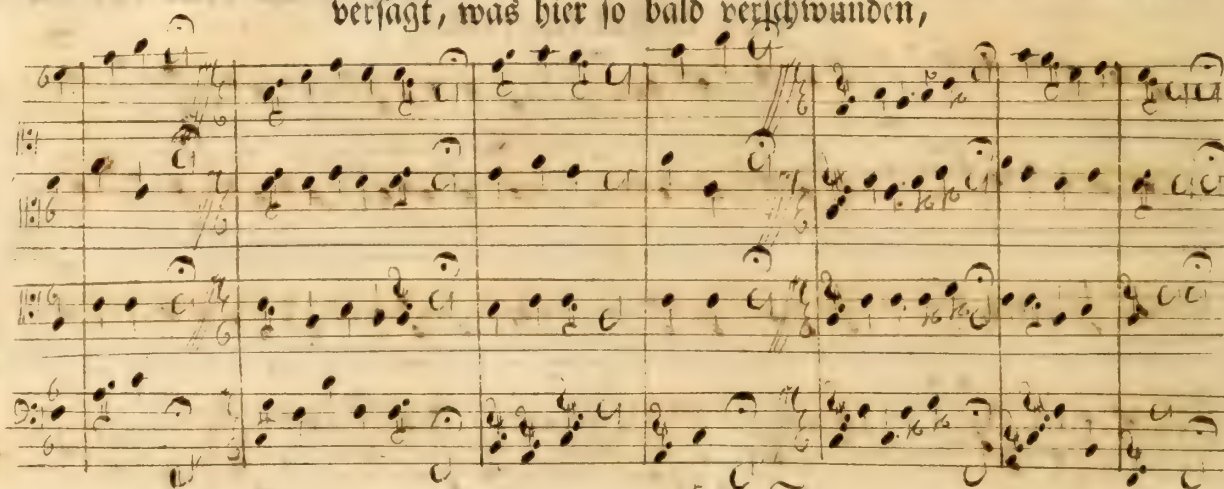 versagt, was hier so bald verschwunden,